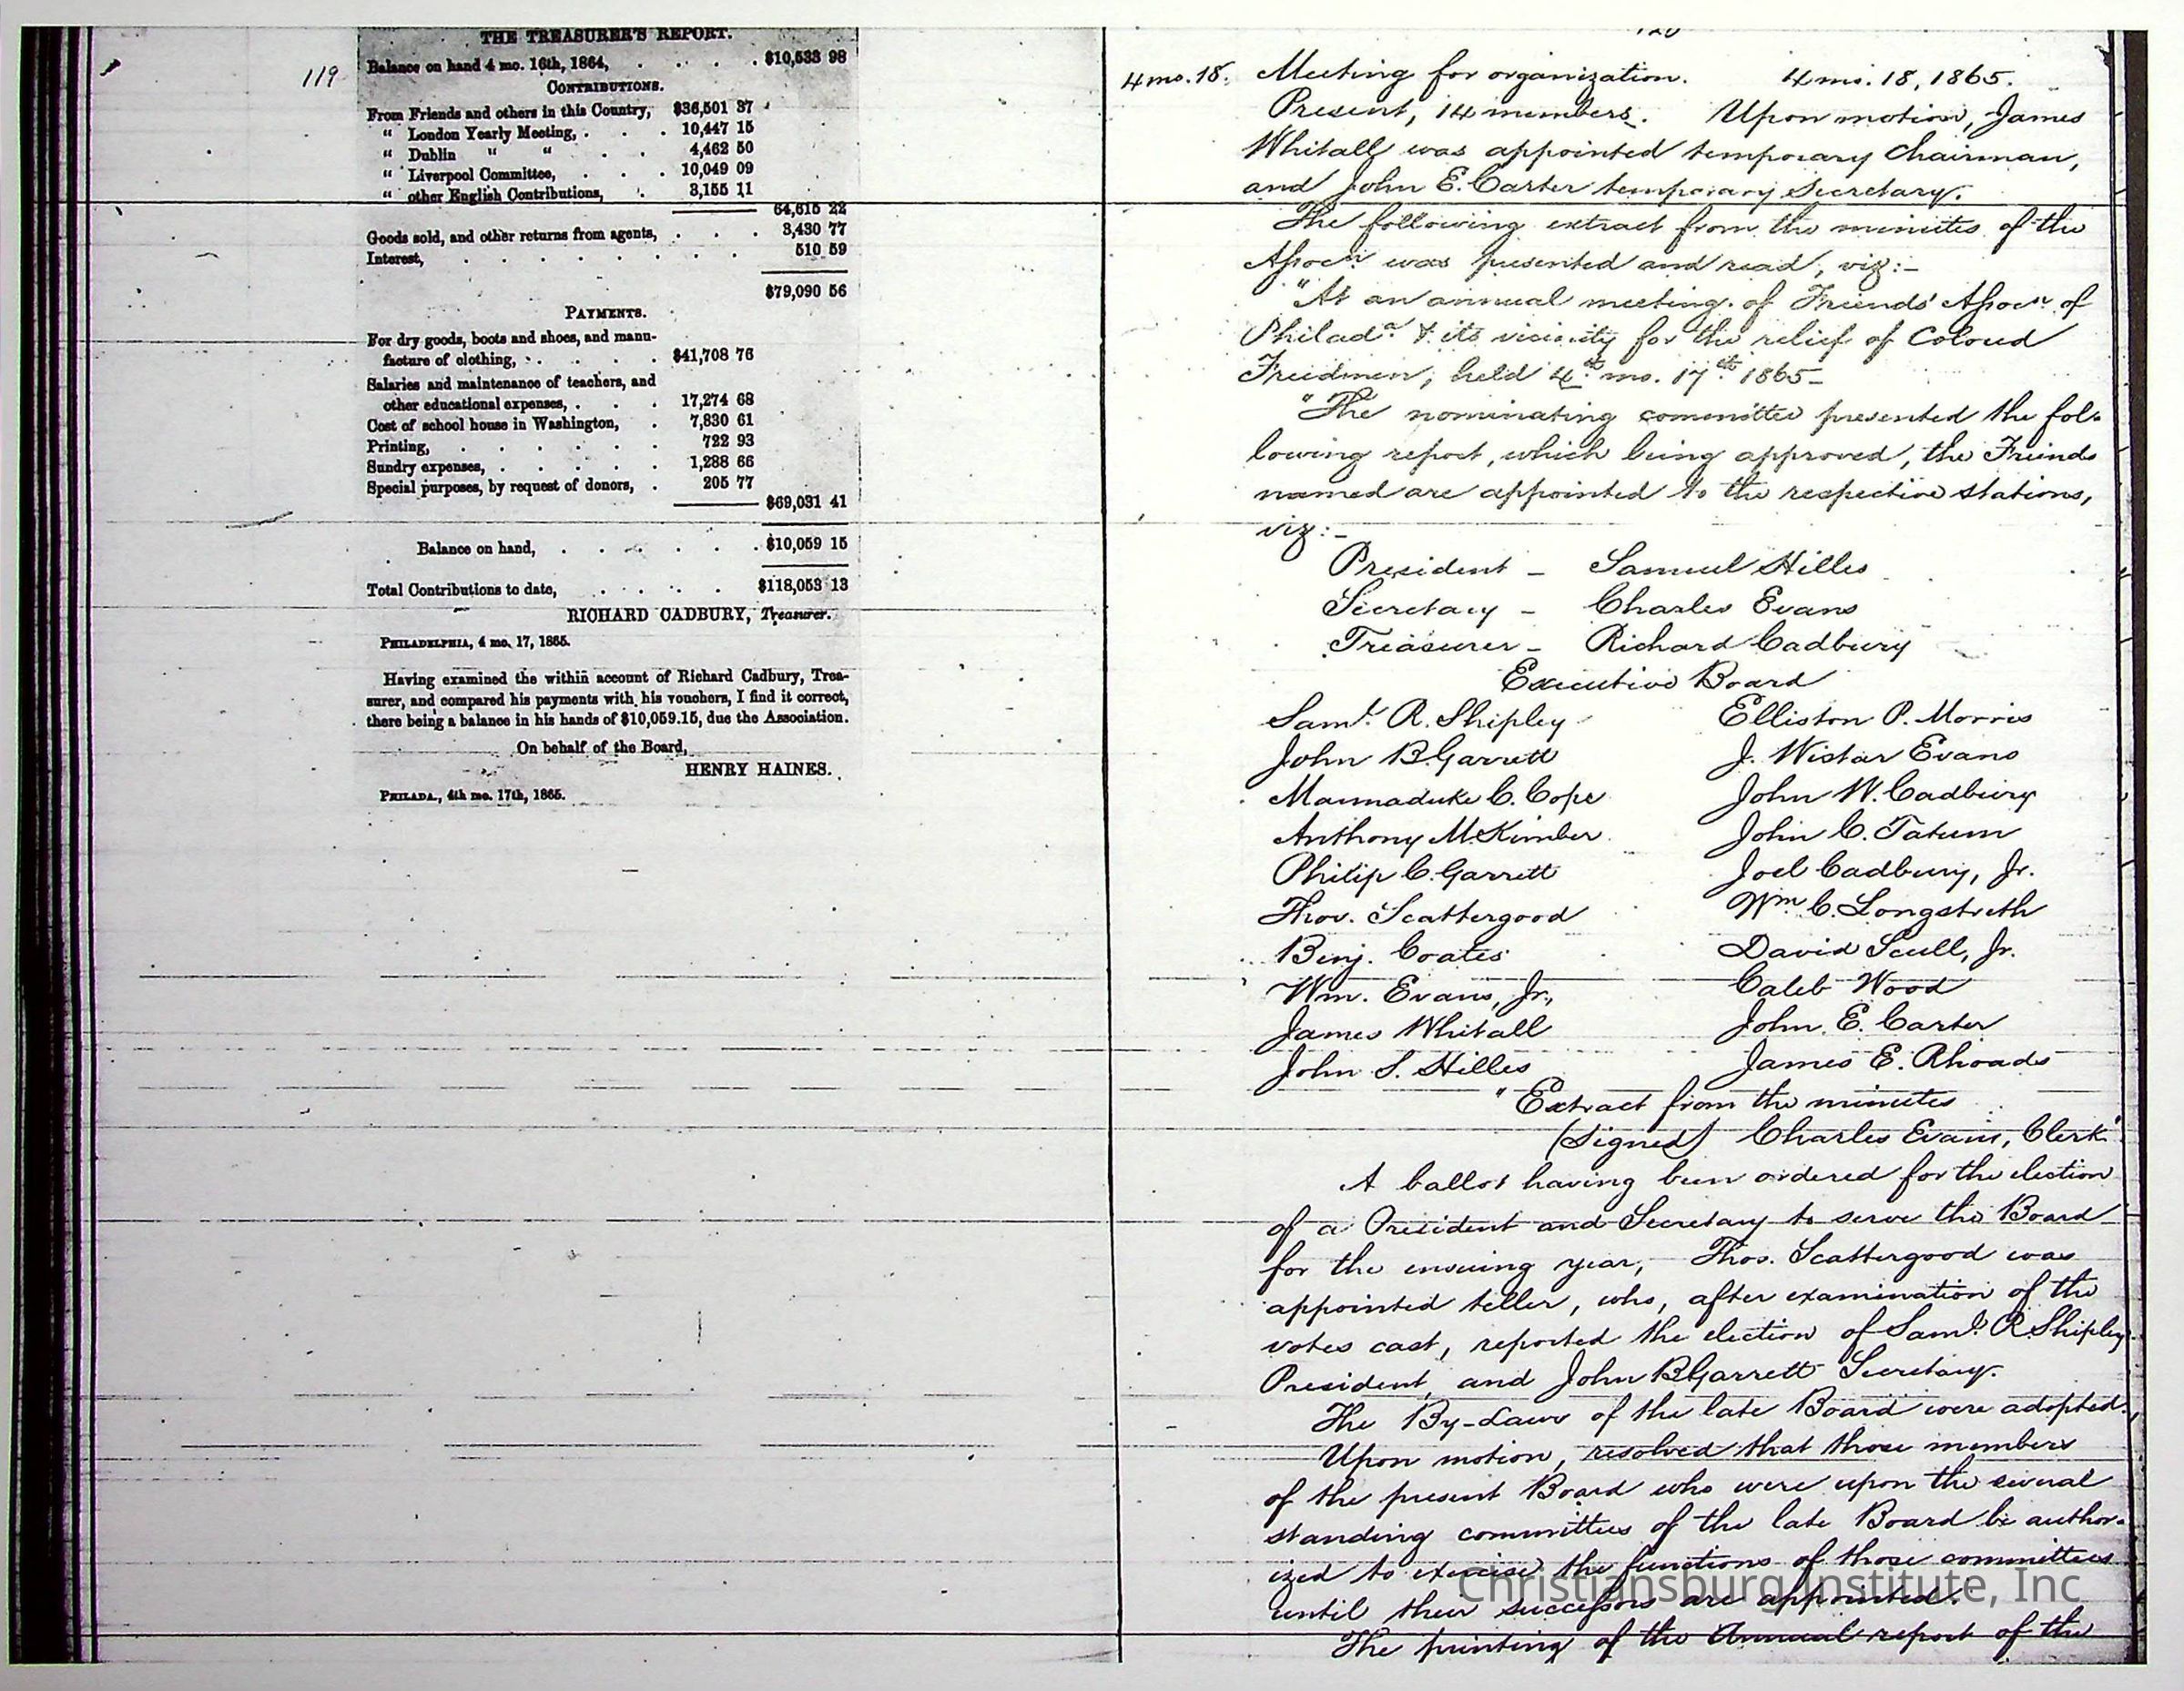 119
THE TREASURER'S REPORT.
Balance on hand 4 mo. 16th, 1864, . . . . $10,533 98
CONTRIBUTIONS.
From Friends and others in this Country, $36,501 37
" London Yearly Meeting, . . . 10,447 15
" Dublin " " . . 4,462 50
" Liverpool Committee, . . . 10,049 09
" other English Contributions, . 3,155 11
64,615 22
Goods sold, and other returns from agents, . . . 3,430 77
Interest, . . . . . . . . 510 59
$79,090 56
PAYMENTS.
For dry goods, boots and shoes, and manu-
facture of clothing, . . . . $41,708 76
Salaries and maintenance of teachers, and
other educational expenses, . . . 17,274 68
Cost of school house in Washington, . 7,830 61
Printing, . . . . . . 722 93
Sundry expenses, . . . . . 1,288 66
Special purposes, by request of donors, . 205 77
$69,031 41
Balance on hand, . . . . . . $10,059 15
Total Contributions to date, . . . . . $118,053 13
RICHARD CADBURY, Treasurer.
PHILADELPHIA, 4 mo. 17, 1865.
Having examined the within account of Richard Cadbury, Trea-
surer, and compared his payments with his vouchers, I find it correct,
there being a balance in his hands of $10,059.15, due the Association.
On behalf of the Board,
HENRY HAINES.
PHILADA., 4th mo. 17th, 1865.
120
4 mo. 18. Meeting for organization. 4 mo. 18, 1865.
Present, 14 members. Upon motion, James
Whitall was appointed temporary Chairman,
and John E. Carter temporary Secretary.
The following extract from the minutes of the
Assocn. was presented and read, viz:-
"At an annual meeting of Friends' Assocn. of
Philada. & its vicinity for the relief of Colored
Freedmen, held 4th mo. 17th 1865-
"The nominating committee presented the fol-
lowing report, which being approved, the Friends
named are appointed to the respective stations,
viz:-
President - Samuel Hilles
Secretary - Charles Evans
Treasurer - Richard Cadbury
Executive Board
Saml. R. Shipley Elliston P. Morris
John B. Garrett J. Wistar Evans
Marmaduke C. Cope John W. Cadbury
Anthony M. Kimber John C. Tatum
Philip C. Garrett Joel Cadbury, Jr.
Thos. Scattergood Wm. C. Longstreth
Benj. Coates David Scull, Jr.
Wm. Evans, Jr., Caleb Wood
James Whitall John E. Carter
John S. Hilles James E. Rhoads
"Extract from the minutes
(Signed) Charles Evans, Clerk"
A ballot having been ordered for the election
of a President and Secretary to serve the Board
for the ensuing year, Thos. Scattergood was
appointed teller, who, after examination of the
votes cast, reported the election of Saml. R. Shipley
President, and John B. Garrett Secretary.
The By-Laws of the late Board were adopted.
Upon motion, resolved that those members
of the present Board who were upon the several
standing committees of the late Board be author-
ized to exercise the functions of those committees
until their successors are appointed.
The printing of the Annual report of the
Christiansburg Institute, Inc